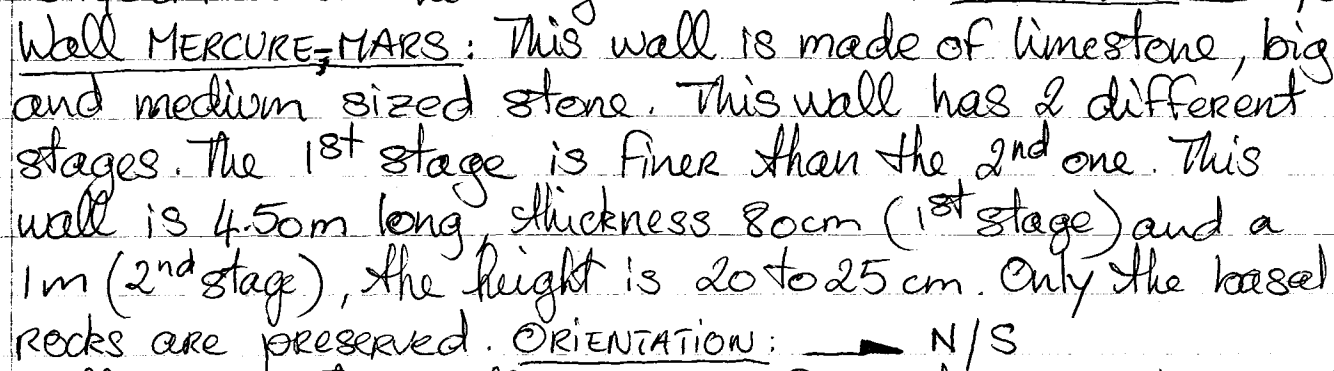 Wall MERCURE-MARS: This wall is made of limestone, big
and medium sized stone. This wall has 2 different
stages. The 1st stage is finer than the 2nd one. This
wall is 4.50m long, thickness 80cm (1st stage) and a
1m (2nd stage), the height is 20 to 25 cm. Only the basal
rocks are preserved. ORIENTATION: → N/S